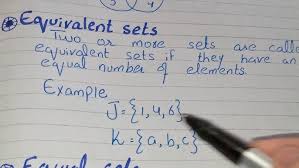 Equivalent sets
Two or more sets are called
equivalent sets if they have an
equal number of elements.
Example
J = {1, 4, 6}
K = {a, b, c}
Equal sets